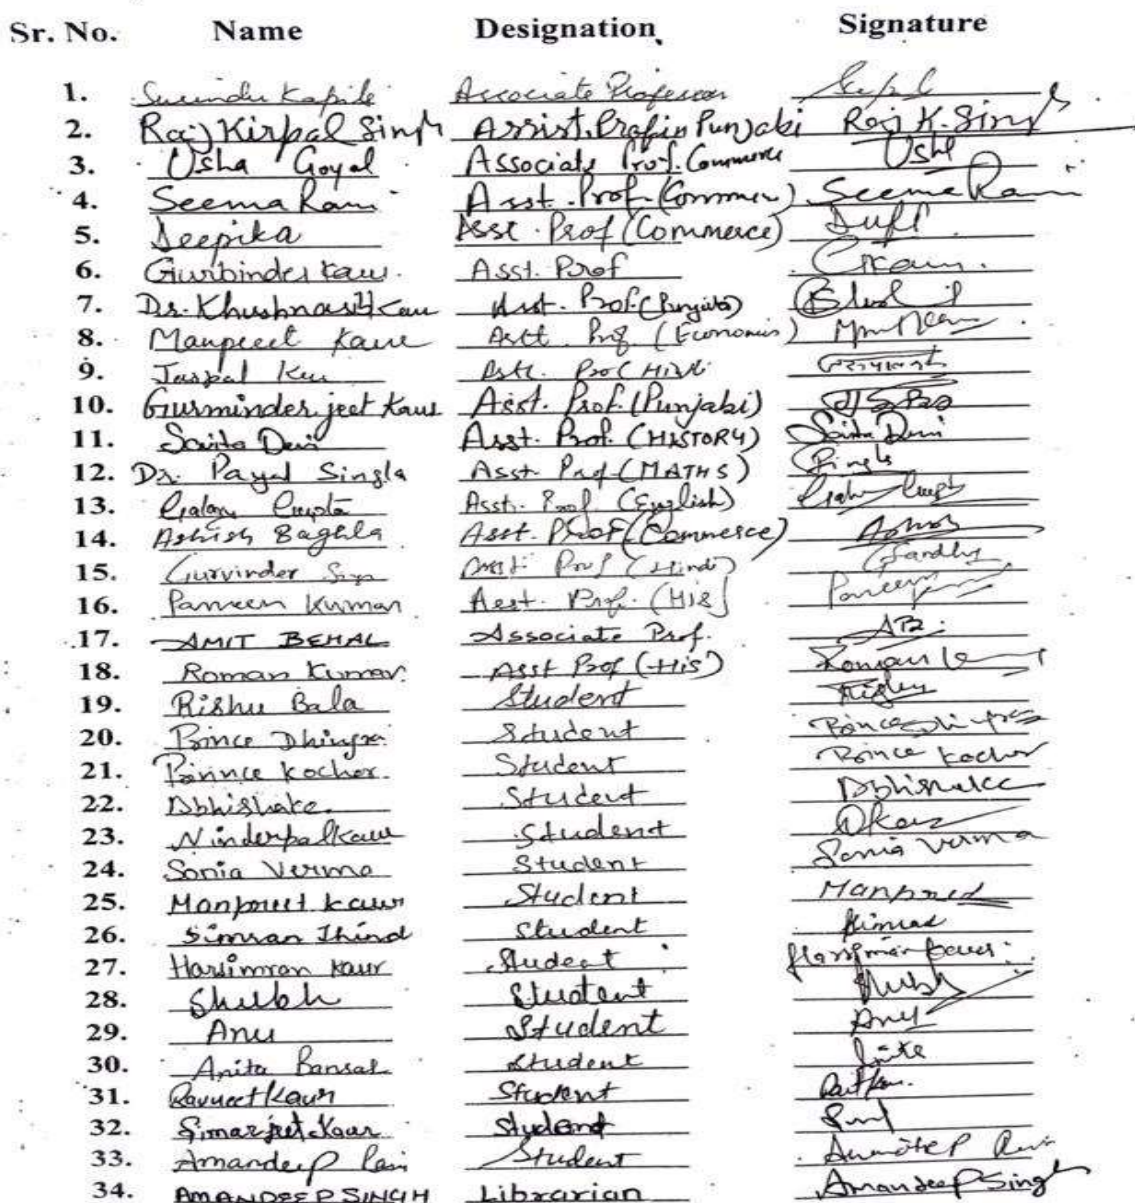 Sr. No. Name Designation Signature
1. Surinder Kapila Associate Professor
2. Raj Kirpal Singh Assist. Prof in Punjabi Raj K. Singh
3. Usha Goyal Associate Prof. Commerce Usha
4. Seema Rani Asst. Prof. (Commerce) Seema Rani
5. Deepika Asst. Prof (Commerce)
6. Gurbinder Kaur. Asst. Prof GKaur.
7. Dr. Khushnasib Kaur Asst. Prof. (Punjabi)
8. Manpreet Kaur Astt. Prof. (Economics)
9. Jaspal Kaur Astt. Prof Hindi
10. Gurminder jeet Kaur Asst. Prof. (Punjabi)
11. Savita Devi Asst. Prof. (HISTORY) Savita Devi
12. Dr. Payal Singla Asst. Prof (MATHS) Singla
13. Gupta Asst. Prof. (English) Gupta
14. Ashish Baghla Asst. Prof (Commerce) Ashish
15. Gurvinder Asstt. Prof (Hindi) Sandhu
16. Parveen Kumar Asst. Prof. (His) Parveen
17. AMIT BEHAL Associate Prof.
18. Roman Kumar Asst Prof (His) Roman
19. Rishu Bala Student Rishu
20. Prince Dhingra Student Prince Dhingra
21. Prince Kocher. Student Prince Kocher
22. Abhishake. Student Abhishake
23. Ninderpal Kaur Student
24. Sonia Verma Student Sonia Verma
25. Manpreet Kaur Student Manpreet
26. Simran Thind Student Simran
27. Harsimran Kaur Student Harsimran Kaur
28. Shubh Student Shubh
29. Anu Student Anu
30. Anita Bansal Student Anita
31. Ravneet Kaur Student
32. Simarjeet Kaur Student
33. Amandeep Rani Student Amandeep Rani
34. AMANDEEP SINGH Librarian Amandeep Singh